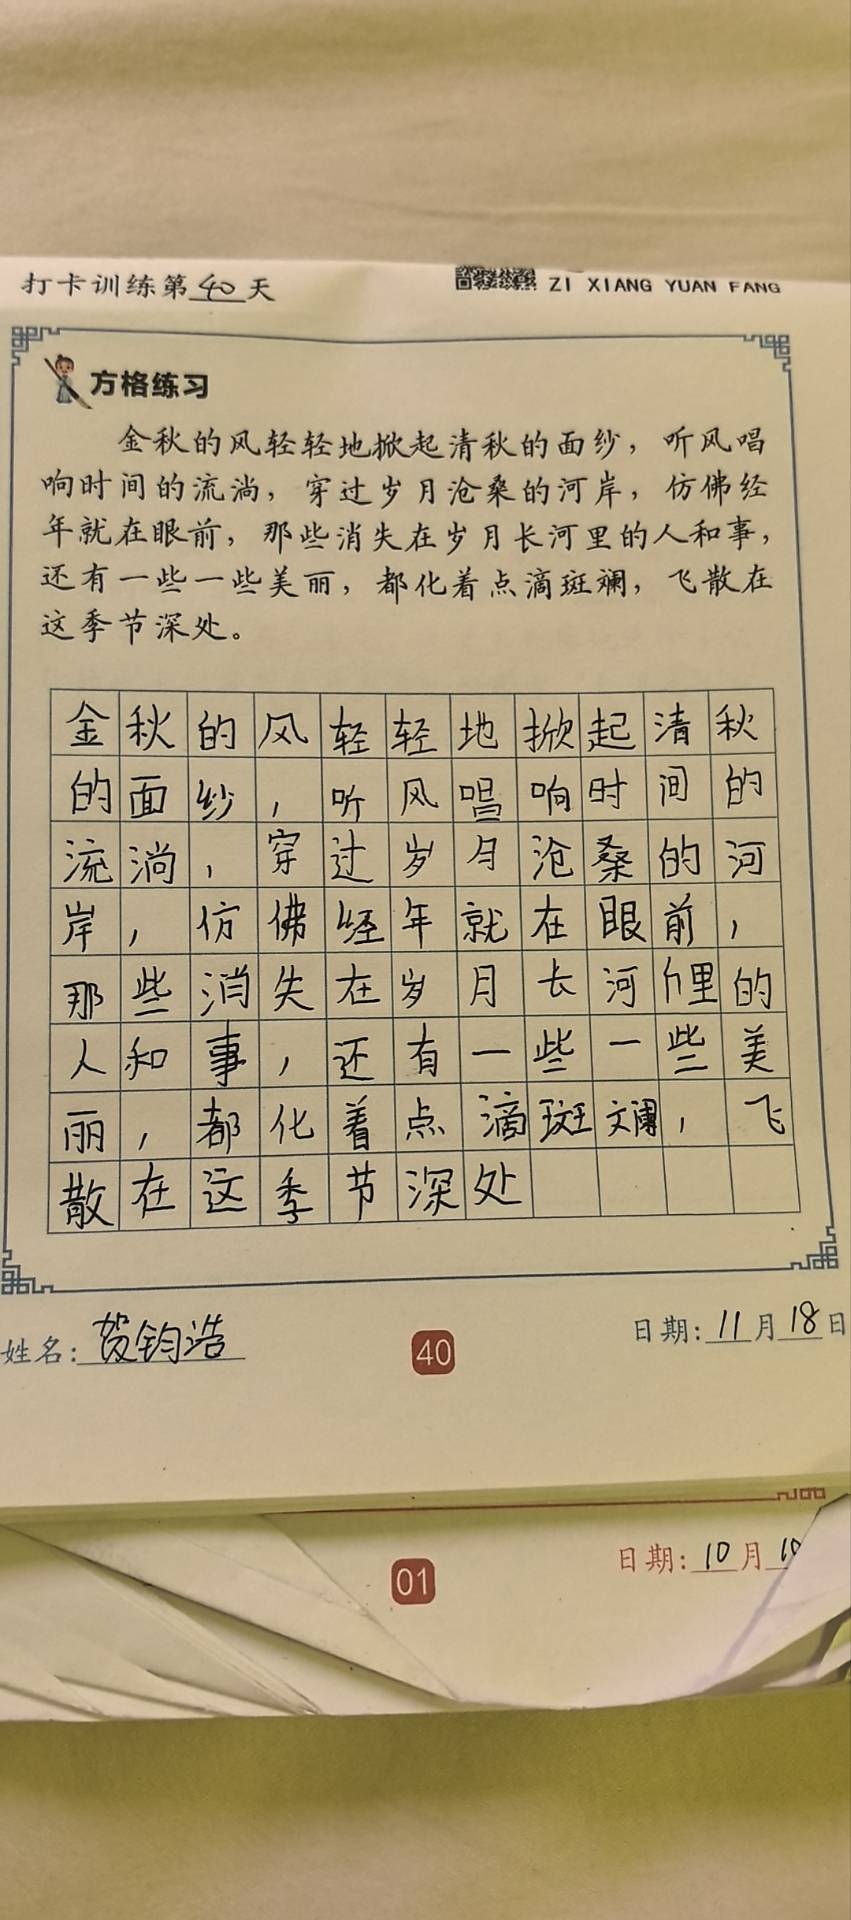 打卡训练第40天
ZI XIANG YUAN FANG
方格练习
金秋的风轻轻地掀起清秋的面纱，听风唱
响时间的流淌，穿过岁月沧桑的河岸，仿佛经
年就在眼前，那些消失在岁月长河里的人和事，
还有一些一些美丽，都化着点滴斑斓，飞散在
这季节深处。
金秋的风轻轻地掀起清秋
的面纱，听风唱响时间的
流淌，穿过岁月沧桑的河
岸，仿佛经年就在眼前，
那些消失在岁月长河里的
人和事，还有一些一些美
丽，都化着点滴斑斓，飞
散在这季节深处
姓名：贺钧浩
40
日期：11月18日
01
日期：10月10